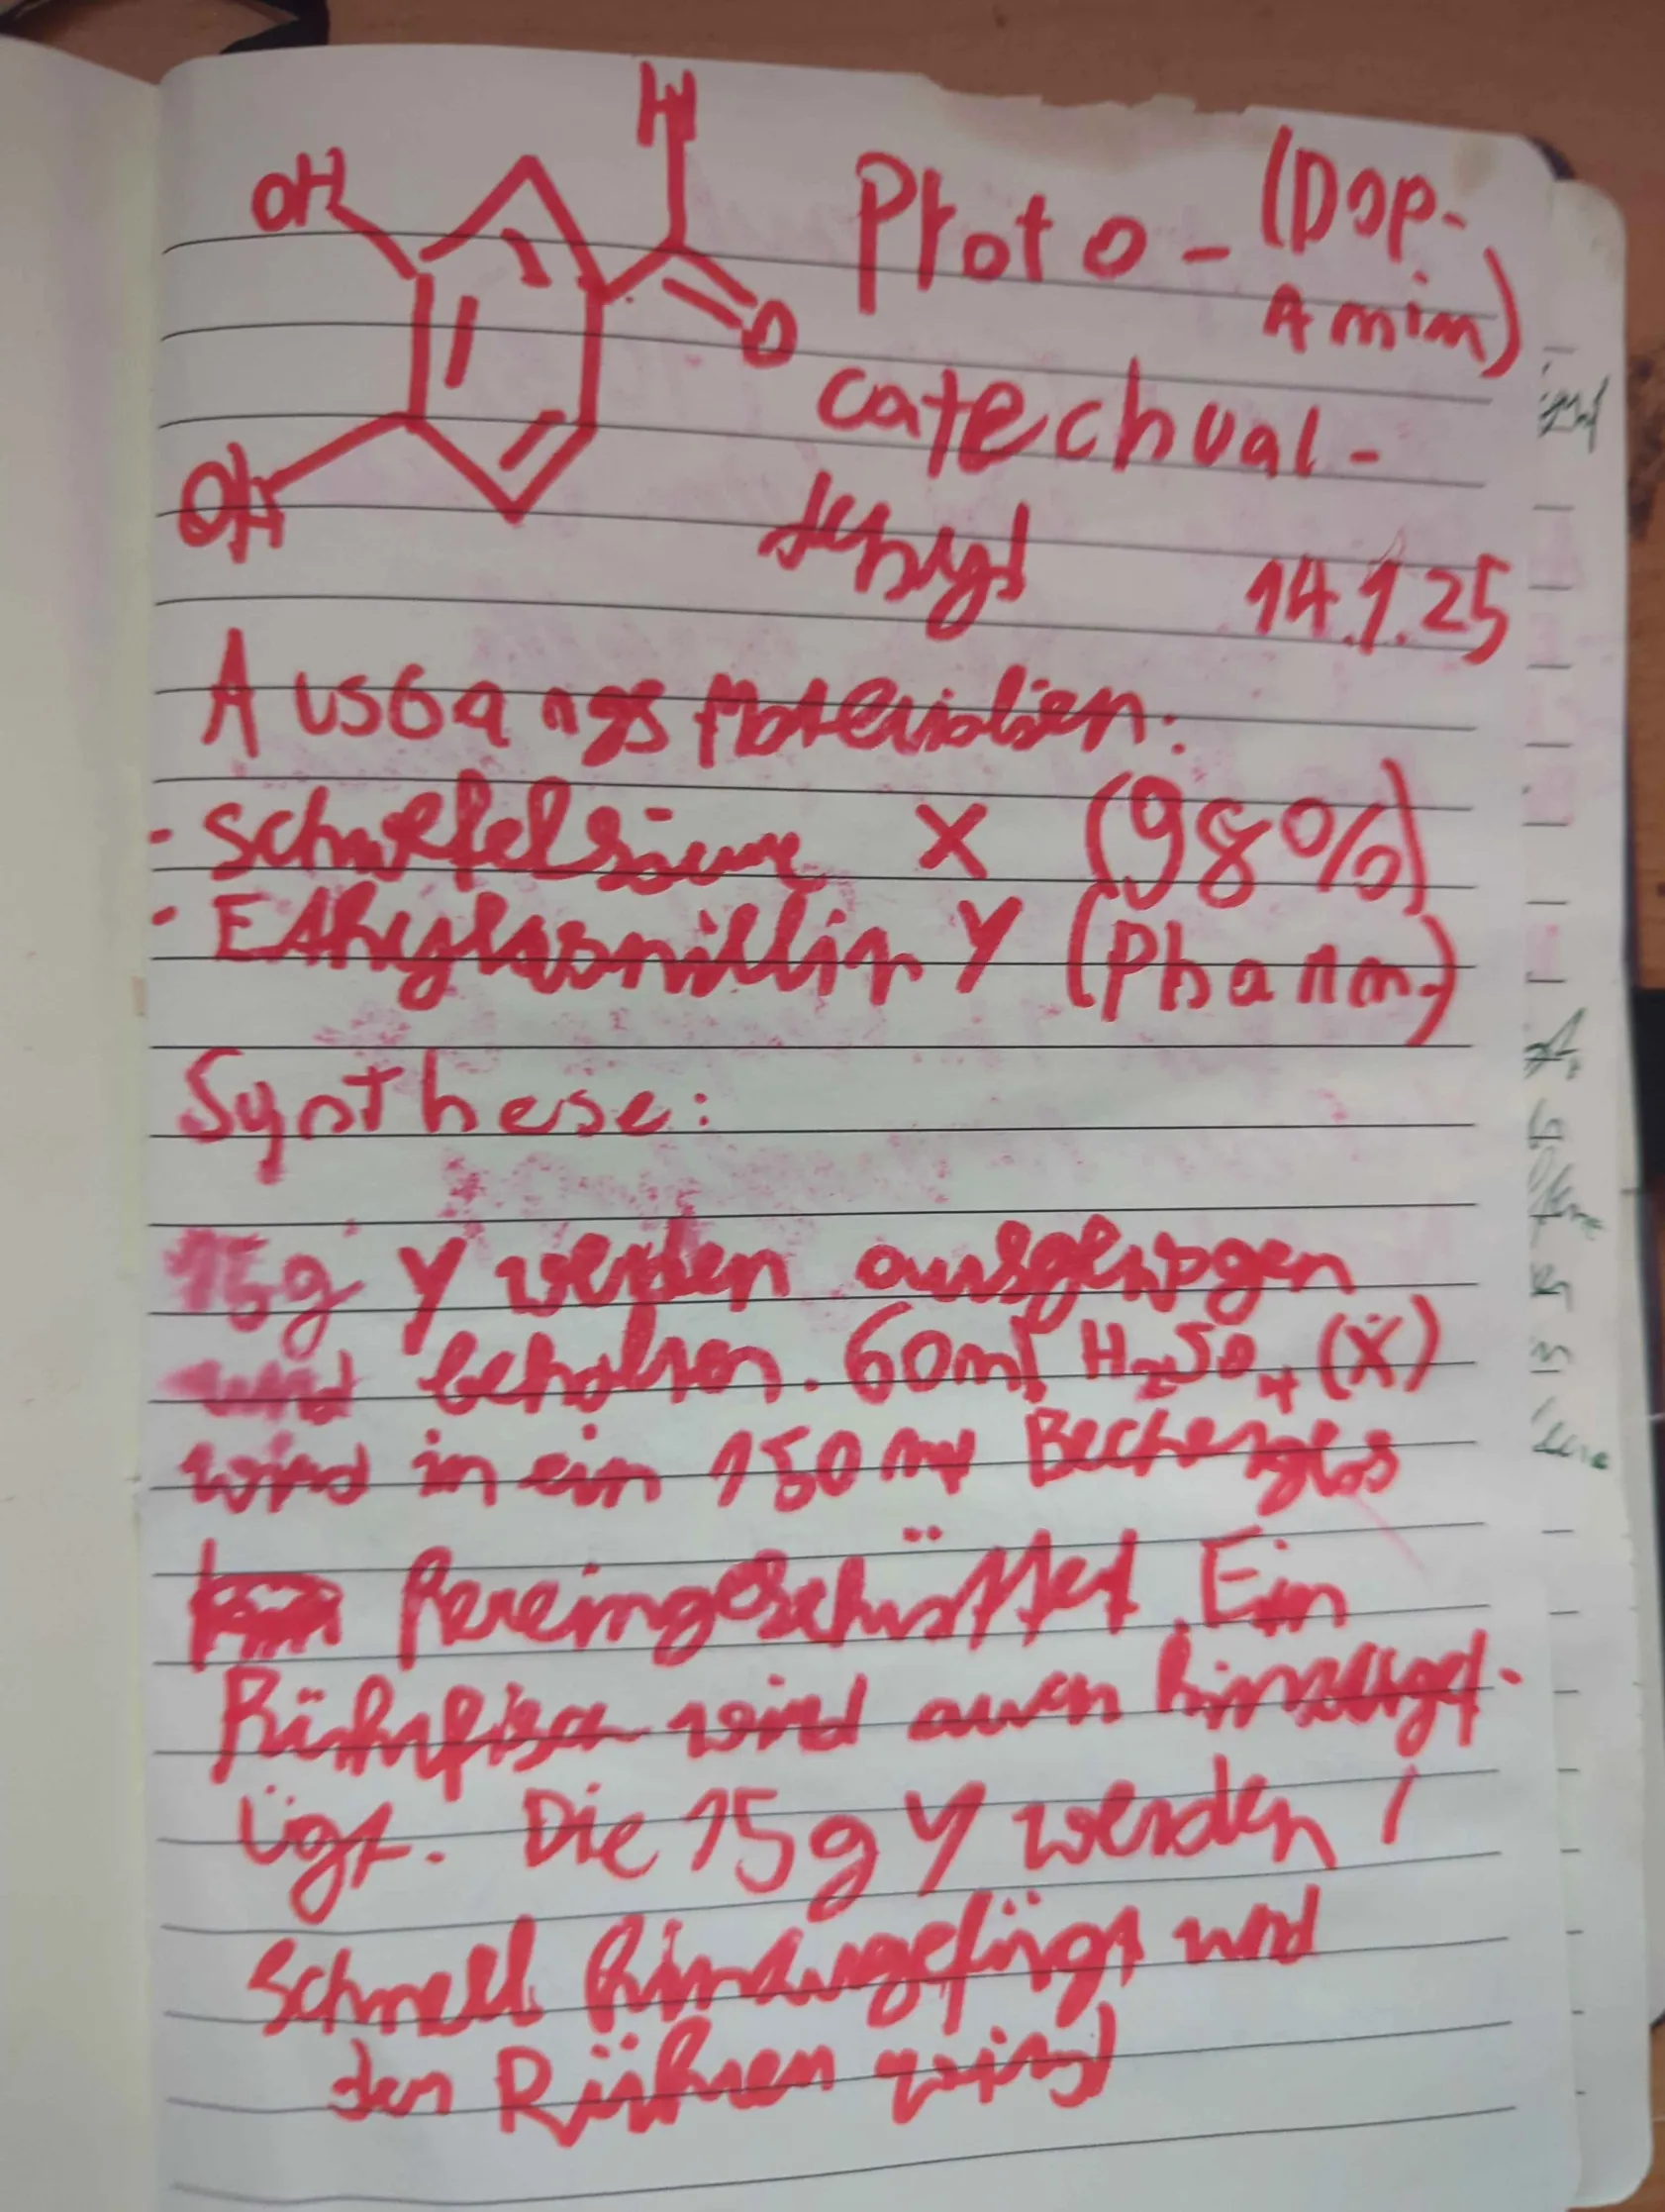 H
OH
O
OH
Proto- (Dop-
Amin)
catechual-
dehyd
14.1.25
AUSGangsMaterialien:
- Schwefelsäure X (98%)
- Ethylvanillin Y (Pharm.)
Synthese:
15g Y werden ausgewogen
und behalten. 60ml H2SO4 (X)
wird in ein 150ml Becherglas
hereingeschüttet. Ein
Rührfisch wird auch hinzugef-
ügt. Die 15g Y werden
schnell hinzugefügt und
der Rührer wird